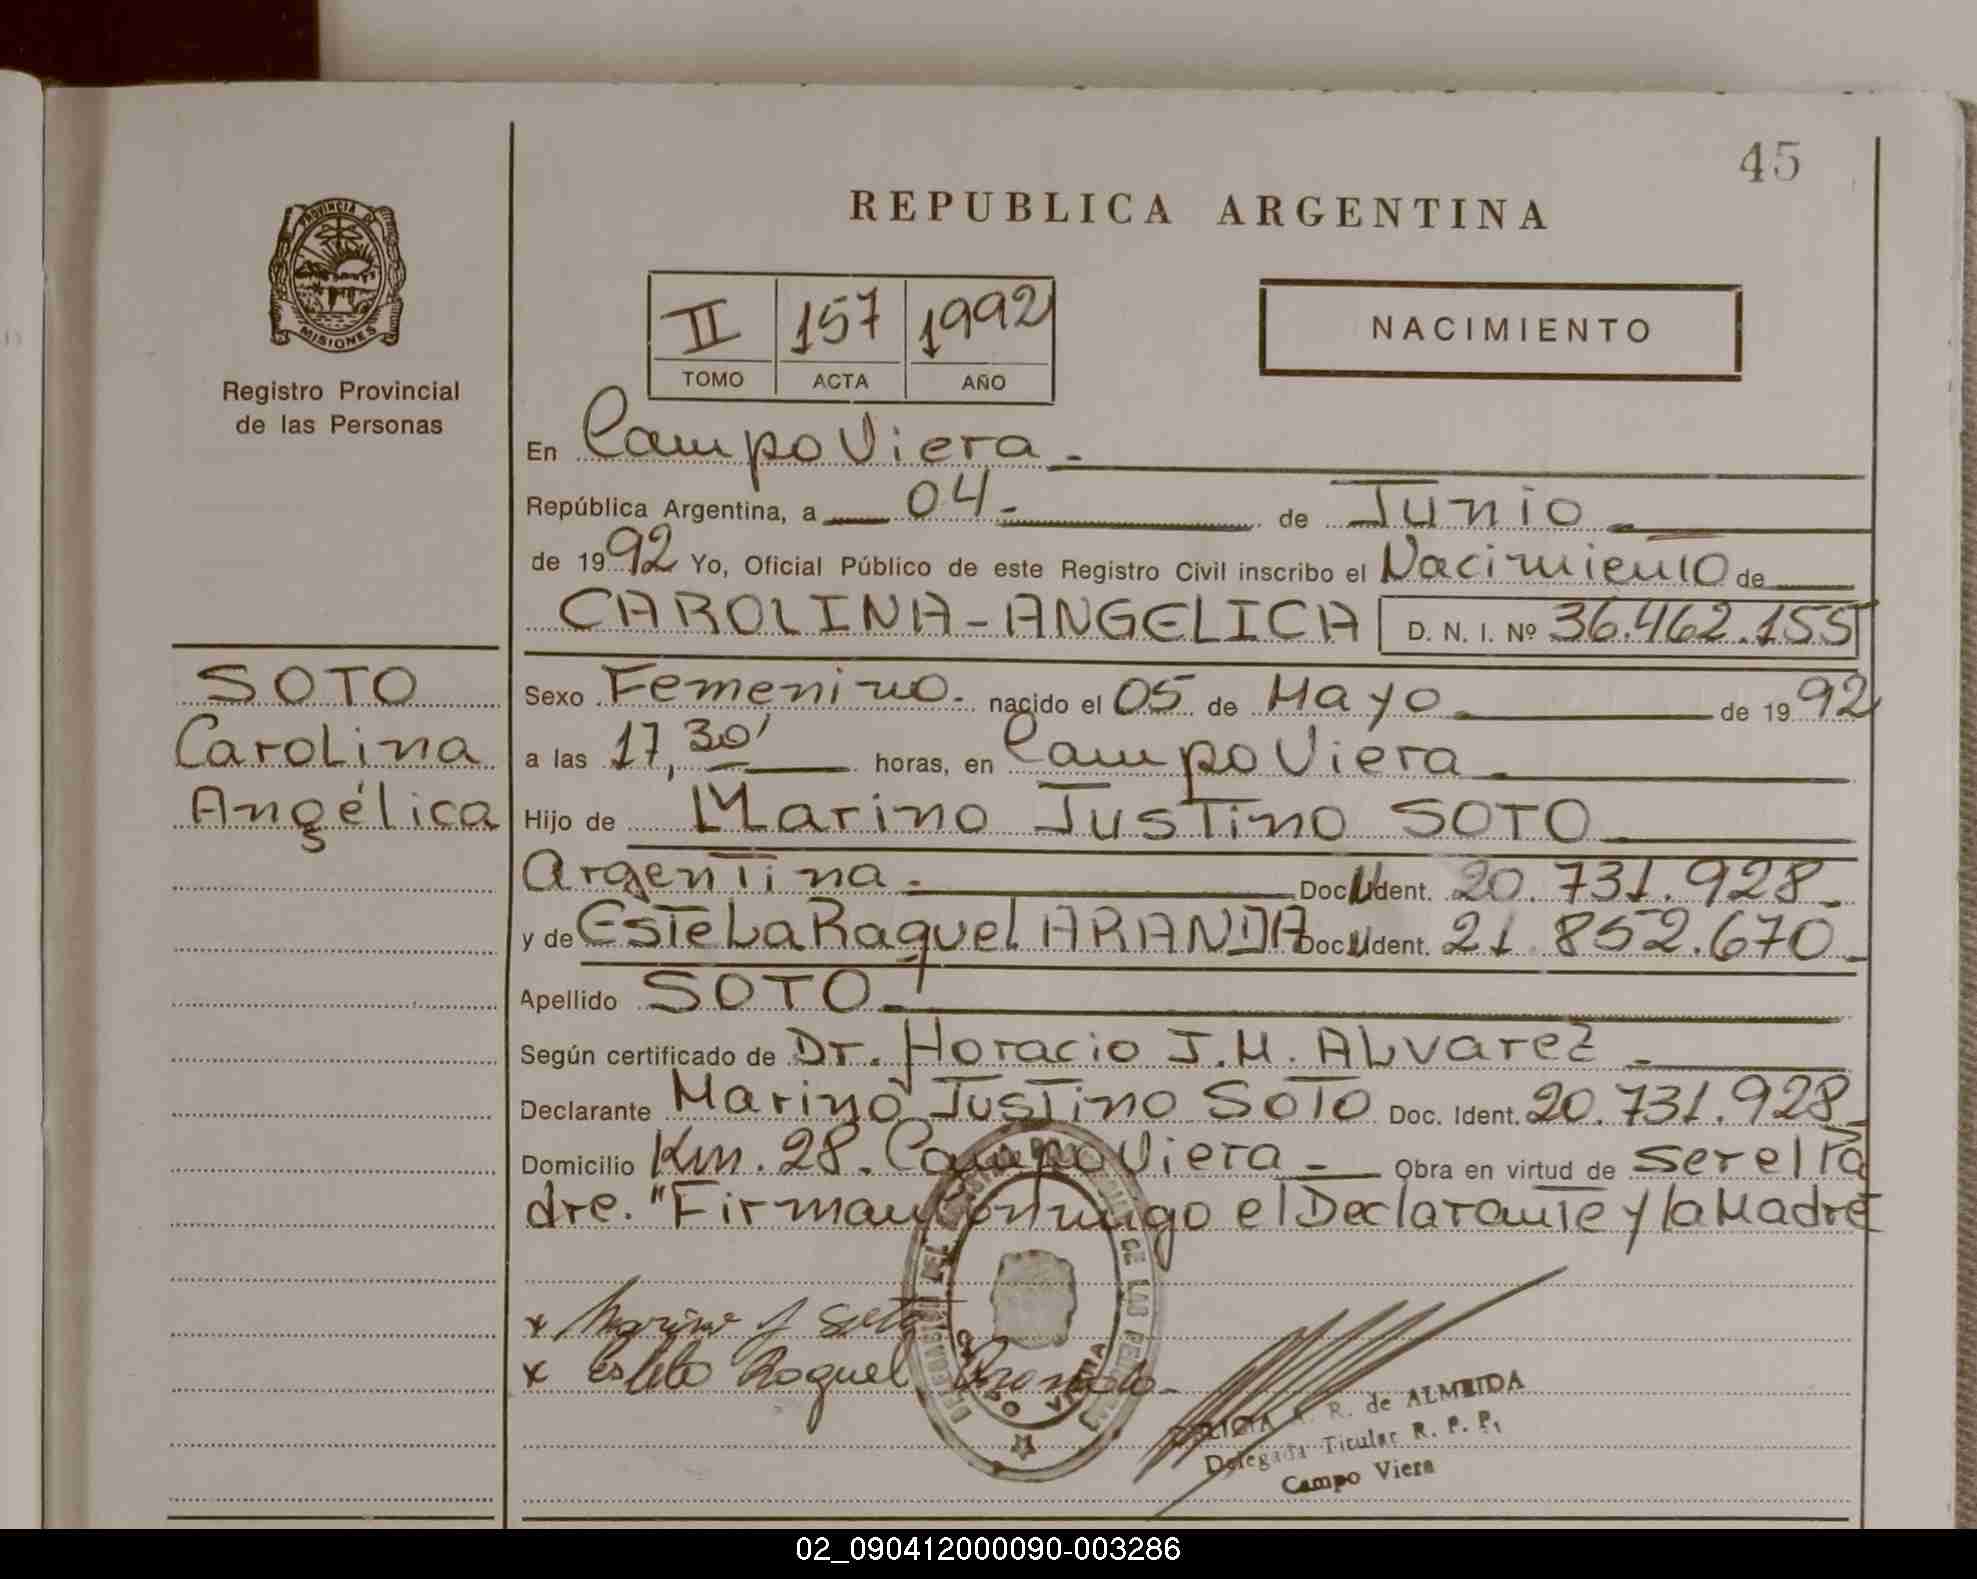 45
REPUBLICA ARGENTINA
PROVINCIA DE
MISIONES
Registro Provincial
de las Personas
II 157 1992
TOMO ACTA AÑO
NACIMIENTO
En Campo Viera.
República Argentina, a 04 de Junio
de 1992 Yo, Oficial Público de este Registro Civil inscribo el Nacimiento de
CAROLINA-ANGELICA D. N. I. Nº 36.462.155
SOTO
Carolina
Angélica
Sexo Femenino. nacido el 05 de Mayo de 1992
a las 17,30' horas, en Campo Viera
Hijo de Marino Justino SOTO
Argentina. Doc. Ident. 20.731.928
y de Estela Raquel ARANDA Doc. Ident. 21.852.670
Apellido SOTO
Según certificado de Dr. Horacio J.M. Alvarez
Declarante Marino Justino SOTO Doc. Ident. 20.731.928
Domicilio Km. 28. Campo Viera Obra en virtud de ser el Pa
dre. "Firman conmigo el Declarante y la Madre
x Marino J Soto
x Estela Raquel Aranda
DE LAS
VIERA
R. de ALMEIDA
Delegada Titular R. P. P.
Campo Viera
02_090412000090-003286